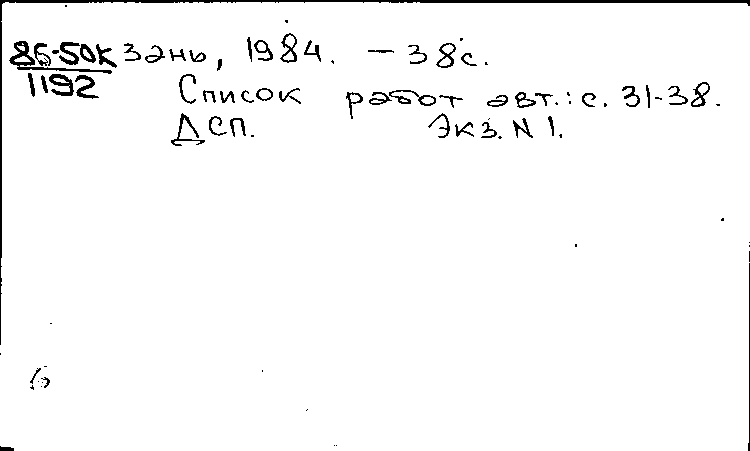 86-50К зань, 1984. – 38с.
1192
Список работ авт.: с. 31-38.
ДСП. Экз. N 1.
6